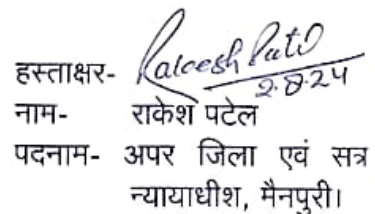 हस्ताक्षर- Rakesh Patel
2.8.24
नाम- राकेश पटेल
पदनाम- अपर जिला एवं सत्र
न्यायाधीश, मैनपुरी।